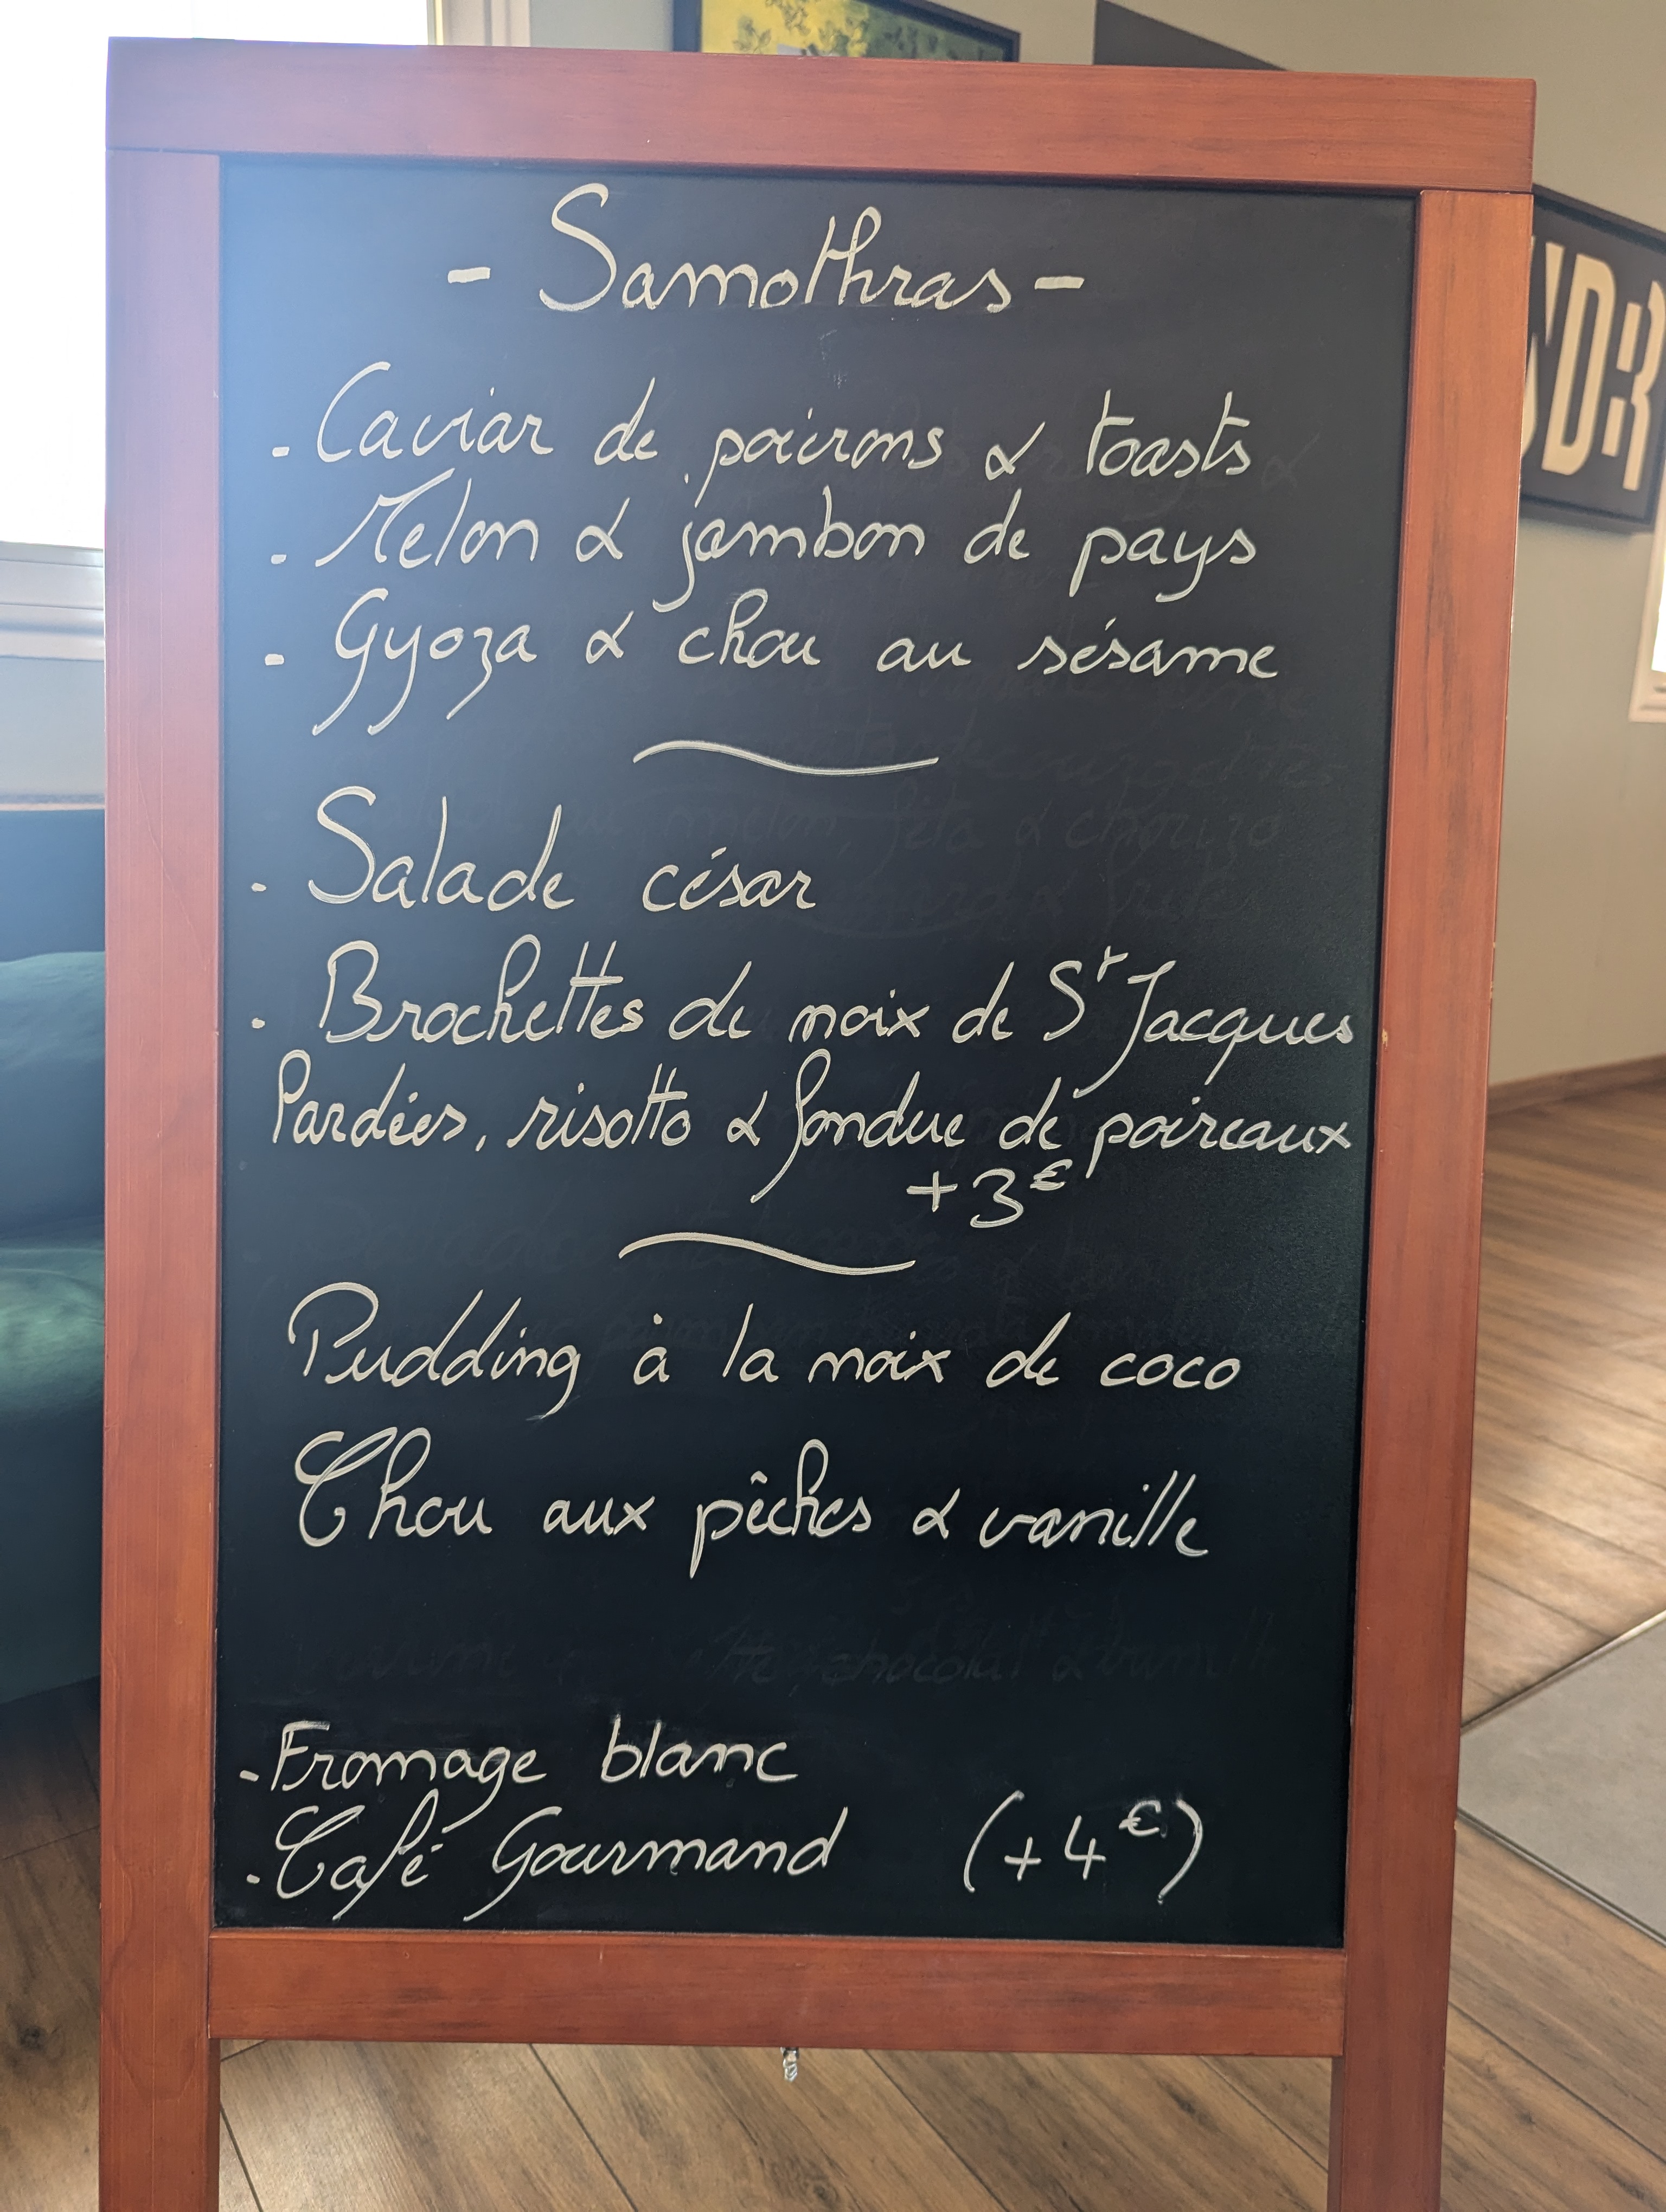 - Samothras -
. Caviar de poivrons & toasts
. Melon & jambon de pays
. Gyoza & chou au sésame
. Salade césar
. Brochettes de noix de St Jacques
Lardées, risotto & fondue de poireaux
+3€
Pudding à la noix de coco
Chou aux pêches & vanille
. Fromage blanc
. Café Gourmand (+4€)